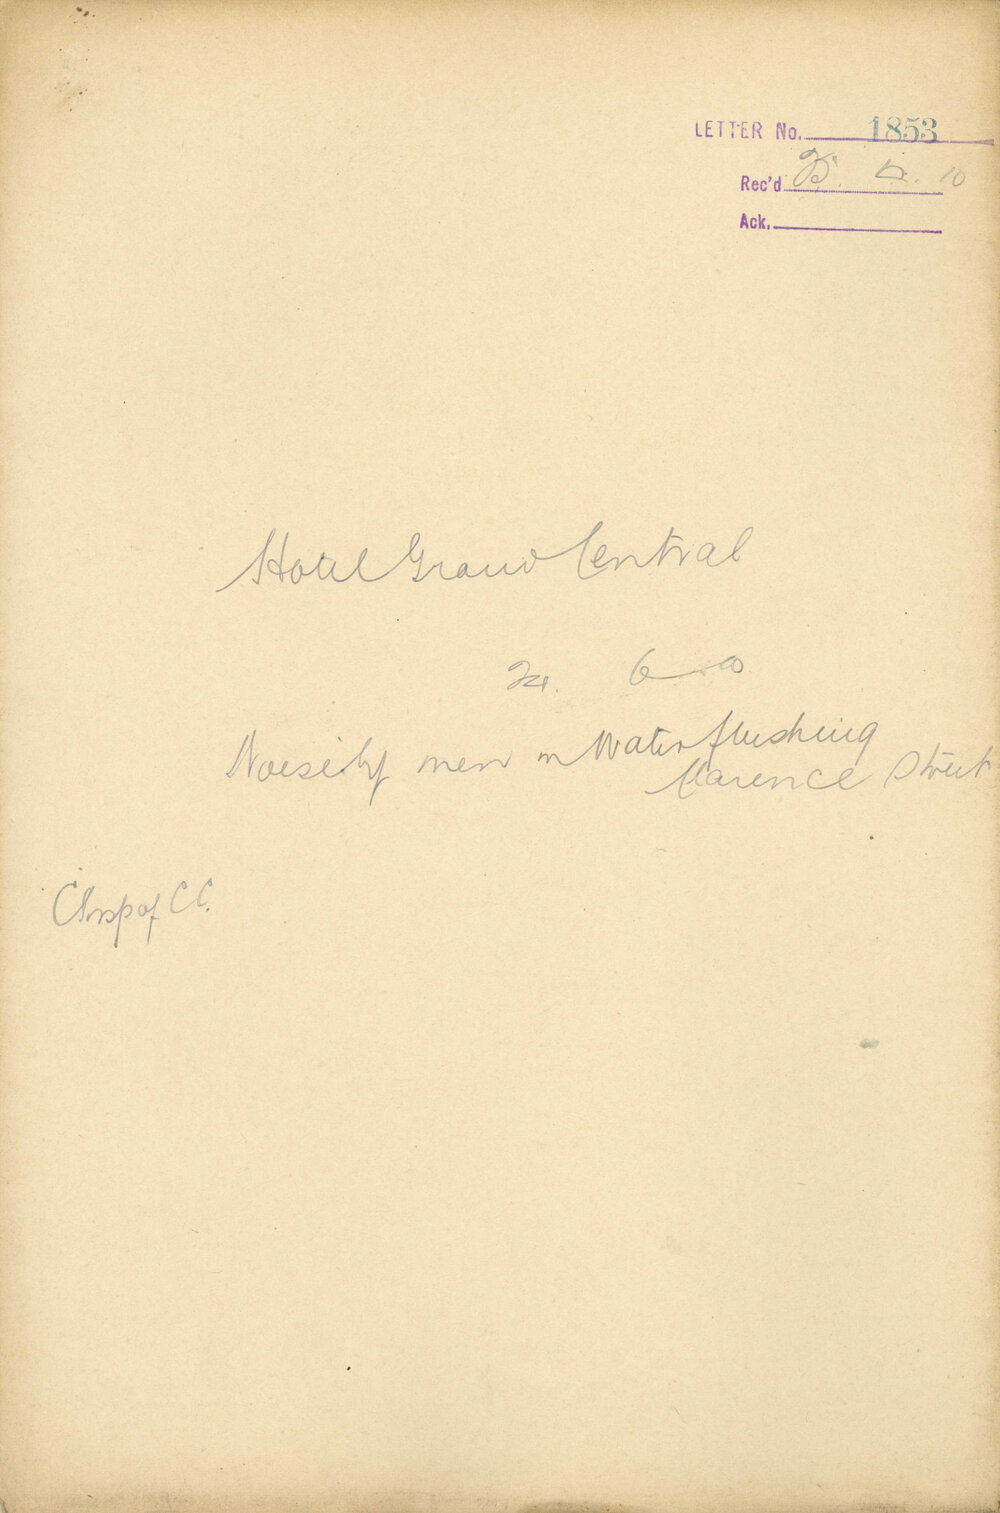 LETTER No. 1853
Rec'd 25. 10
Ack.
Hotel Grand Central
24. 6 10
Noise by men in Water flushing
Clarence Street
C Insp of C C.